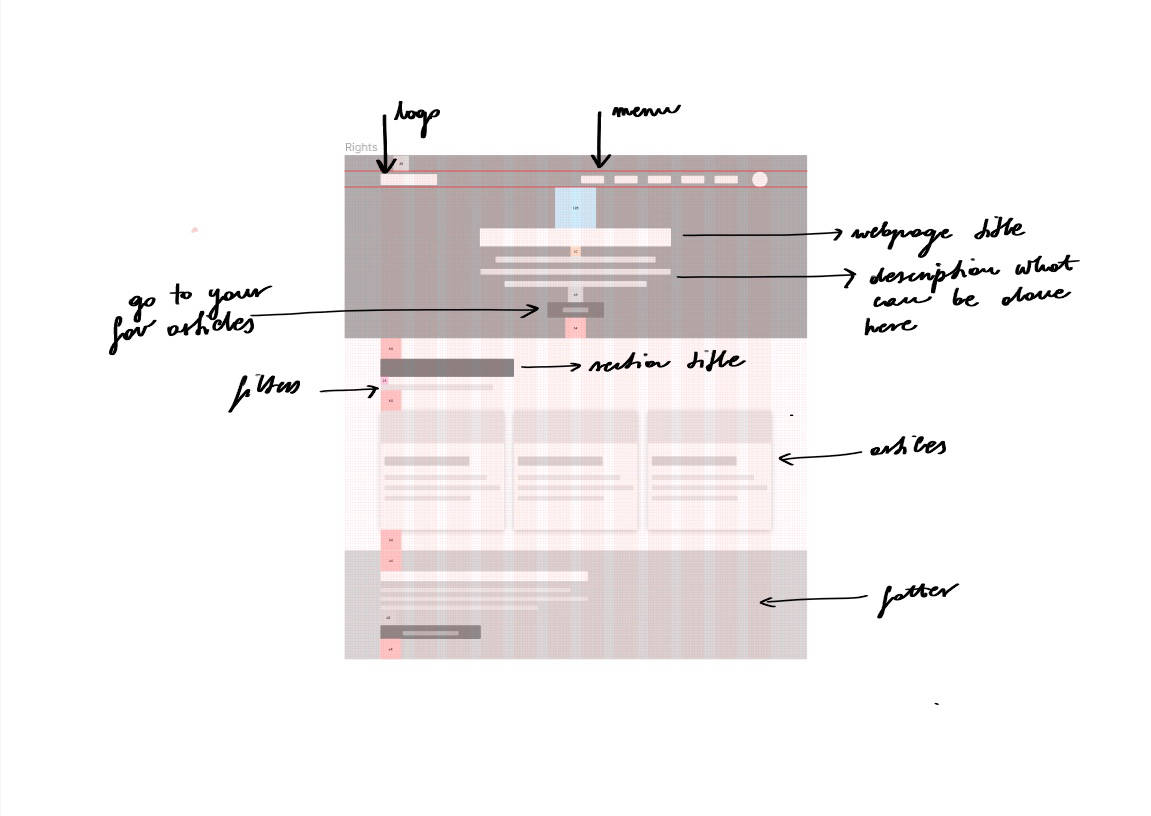 logo
menu
Rights
webpage title
description what
can be done
here
go to your
fav articles
section title
filters
articles
footer